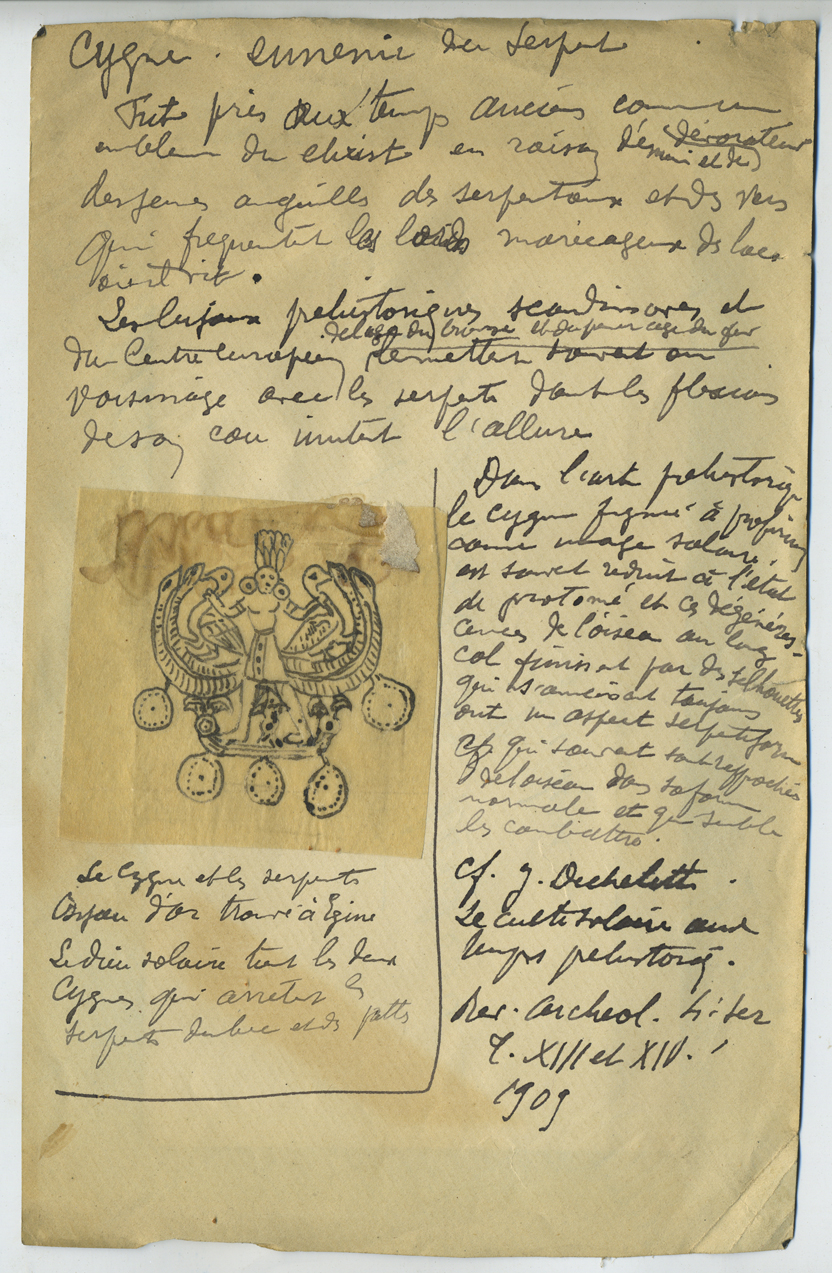 Cygne. ennemi du serpent
Fut pris aux temps anciens comme un
emblem du christ en raison dévorateur
des jeunes anguilles des serpentaux et des vers
qui frequentent les bords marecageux des lacs
où il vit.
Les bijoux prehistoriques scandinaves et
de l'age du bronze et du premier age du fer
du Centre européen le mettent souvent en
voisinage avec les serpents dont les flexions
de son cou imitent l'allure
Dans l'art prehistoriq
le cygne figuré à profusion
comme image solaire,
est souvent reduit à l'état
de protomé et ces dégénéres-
cences de l'oiseau au long
col finissent par des silhouettes
qui s'amincissent toujours
ont un aspect serpentiform
et qui souvent sont rapprochés
de l'oiseau dans sa forme
normale et qui semble
les combattre.
cf. J. Dechelette.
Le culte solaire aux
temps prehistoriq.
Rev. Archeol. 4: ser
T. XIII et XIV.
1909
Le Cygne et les serpents
Bijou d'or trouvé à Egine
Le dieu solaire tient les deux
Cygnes qui arretent les
serpents du bec et des pattes